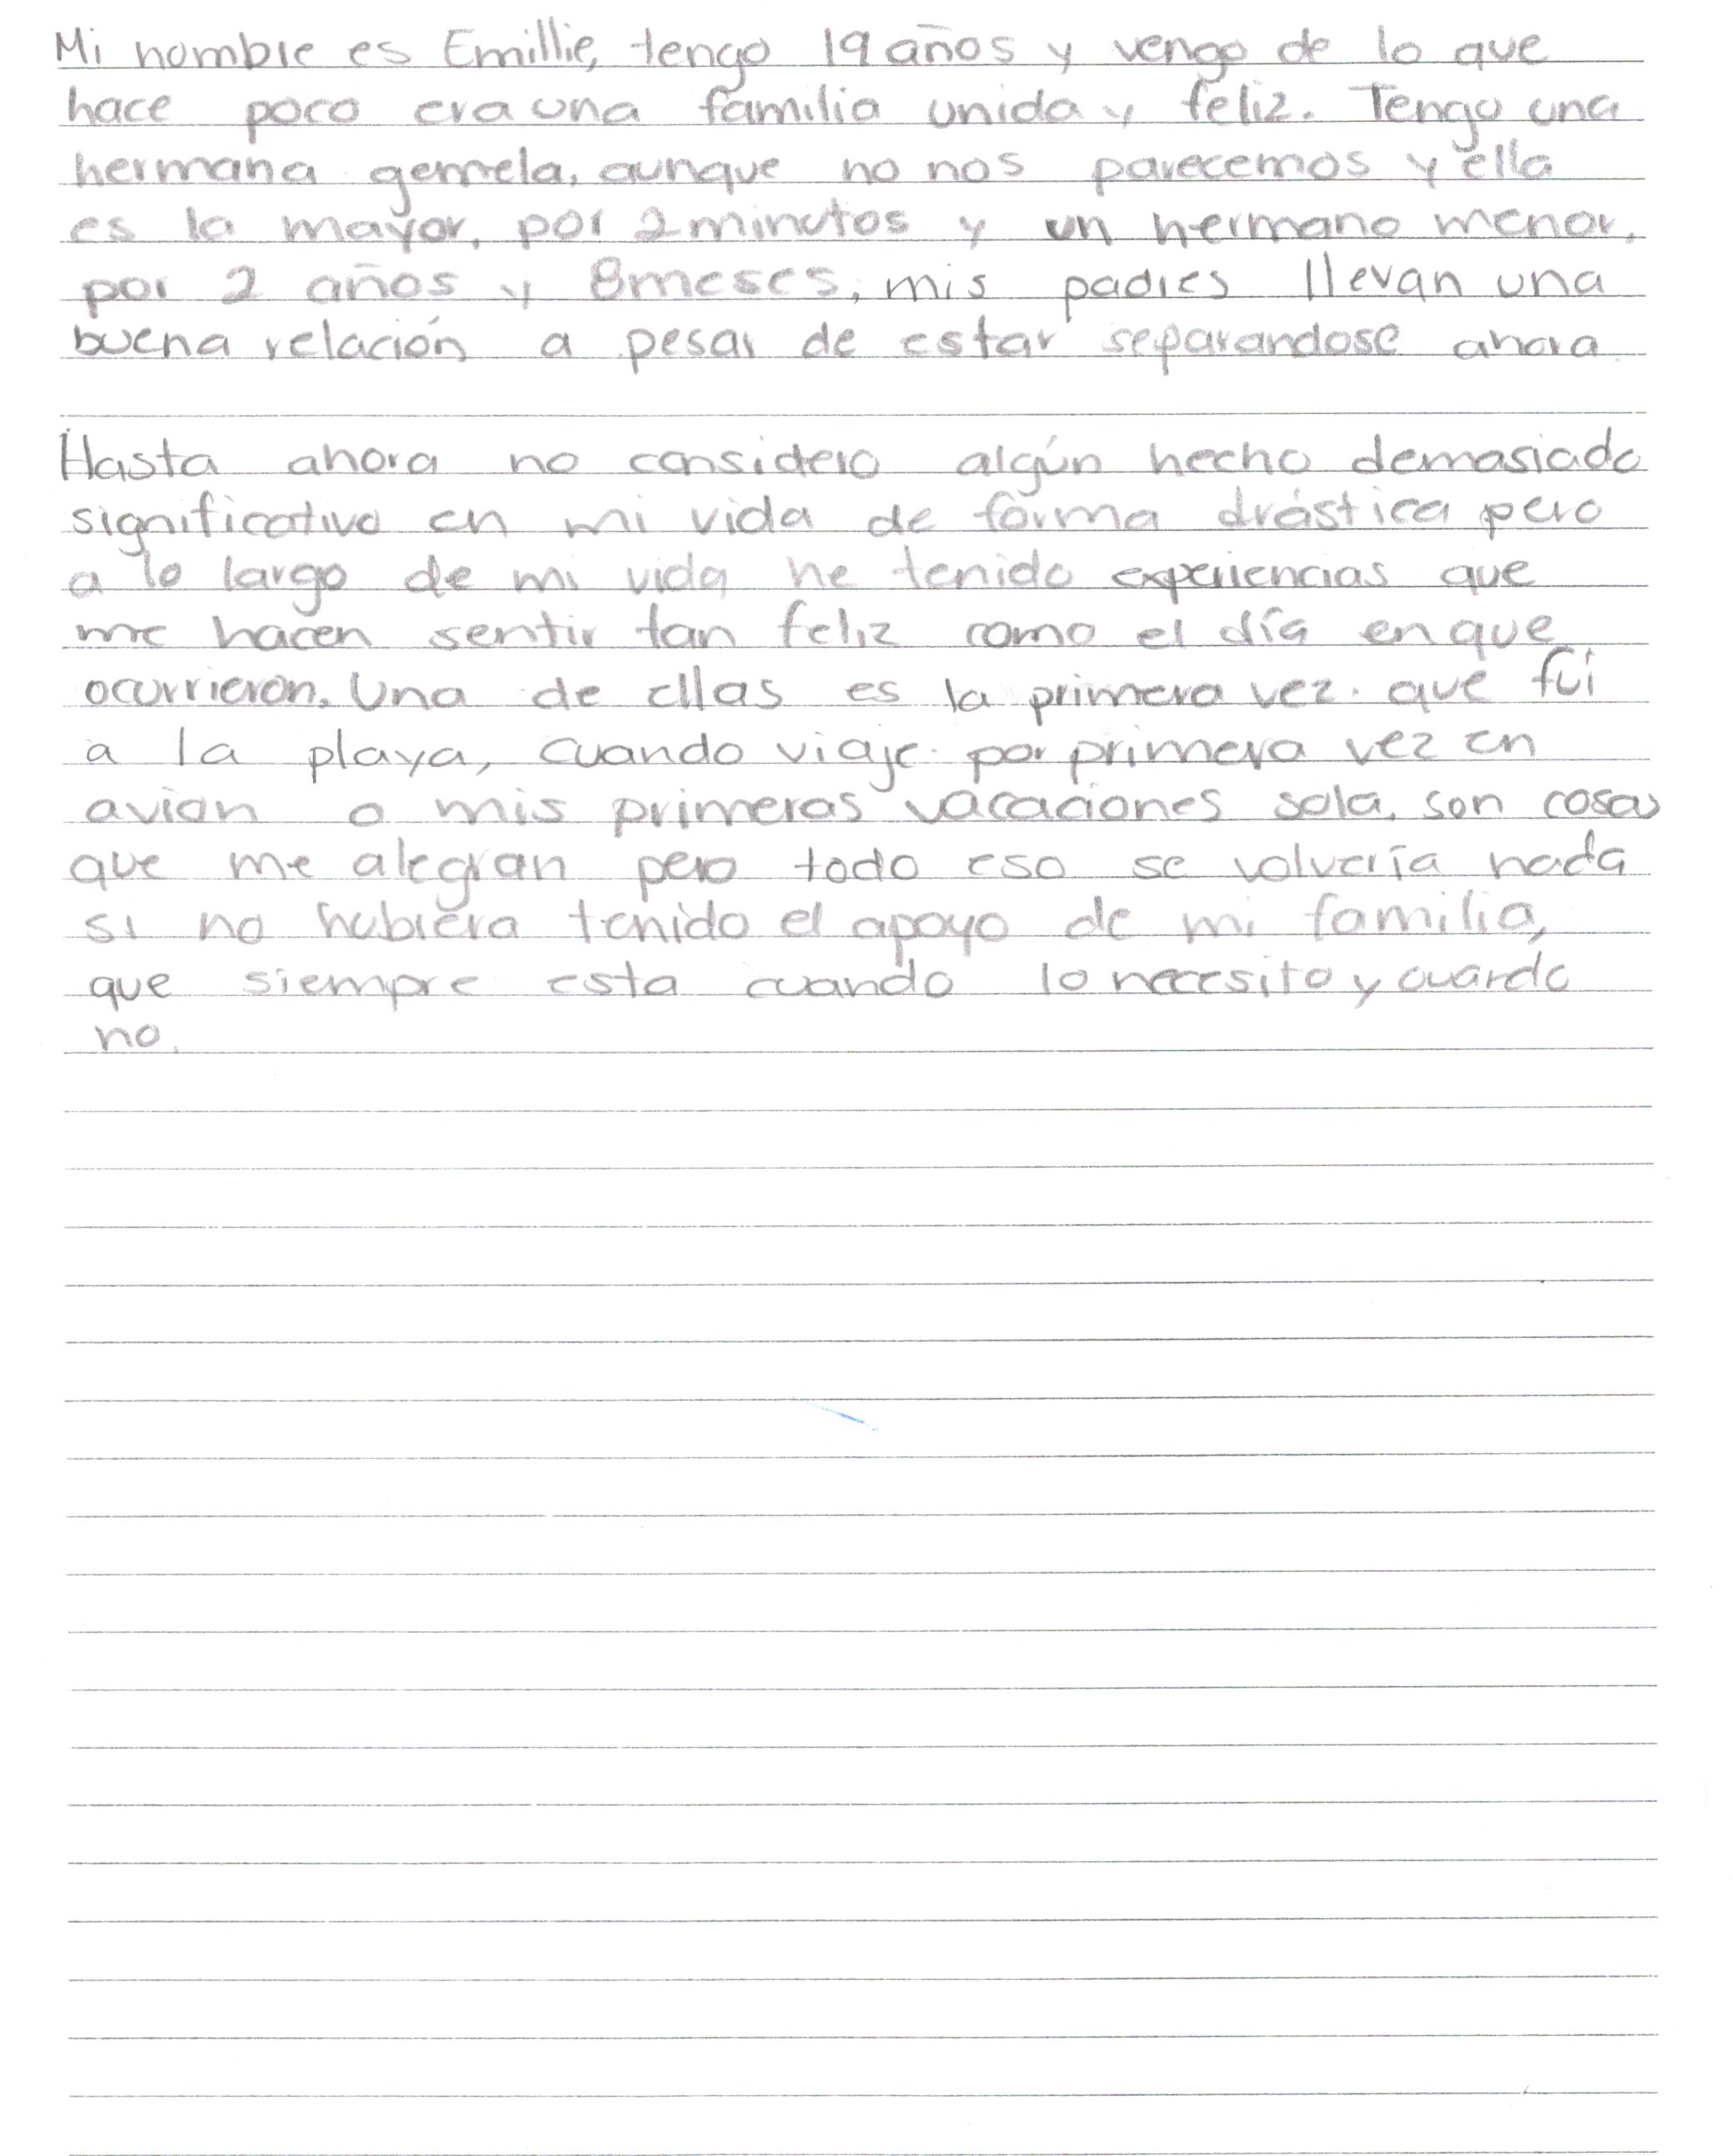 Mi nombre es Emillie, tengo 19 años y vengo de lo que
hace poco era una familia unida y feliz. Tengo una
hermana gemela, aunque no nos parecemos y ella
es la mayor, por 2 minutos y un hermano menor,
por 2 años y 8 meses, mis padres llevan una
buena relación a pesar de estar separandose ahora.
Hasta ahora no considero algún hecho demasiado
significativo en mi vida de forma drástica pero
a lo largo de mi vida he tenido experiencias que
me hacen sentir tan feliz como el día en que
ocurrieron. Una de ellas es la primera vez que fuí
a la playa, cuando viaje por primera vez en
avion o mis primeras vacaciones sola, son cosas
que me alegran pero todo eso se volvería nada
si no hubiera tenido el apoyo de mi familia,
que siempre esta cuando lo necesito y cuando
no.